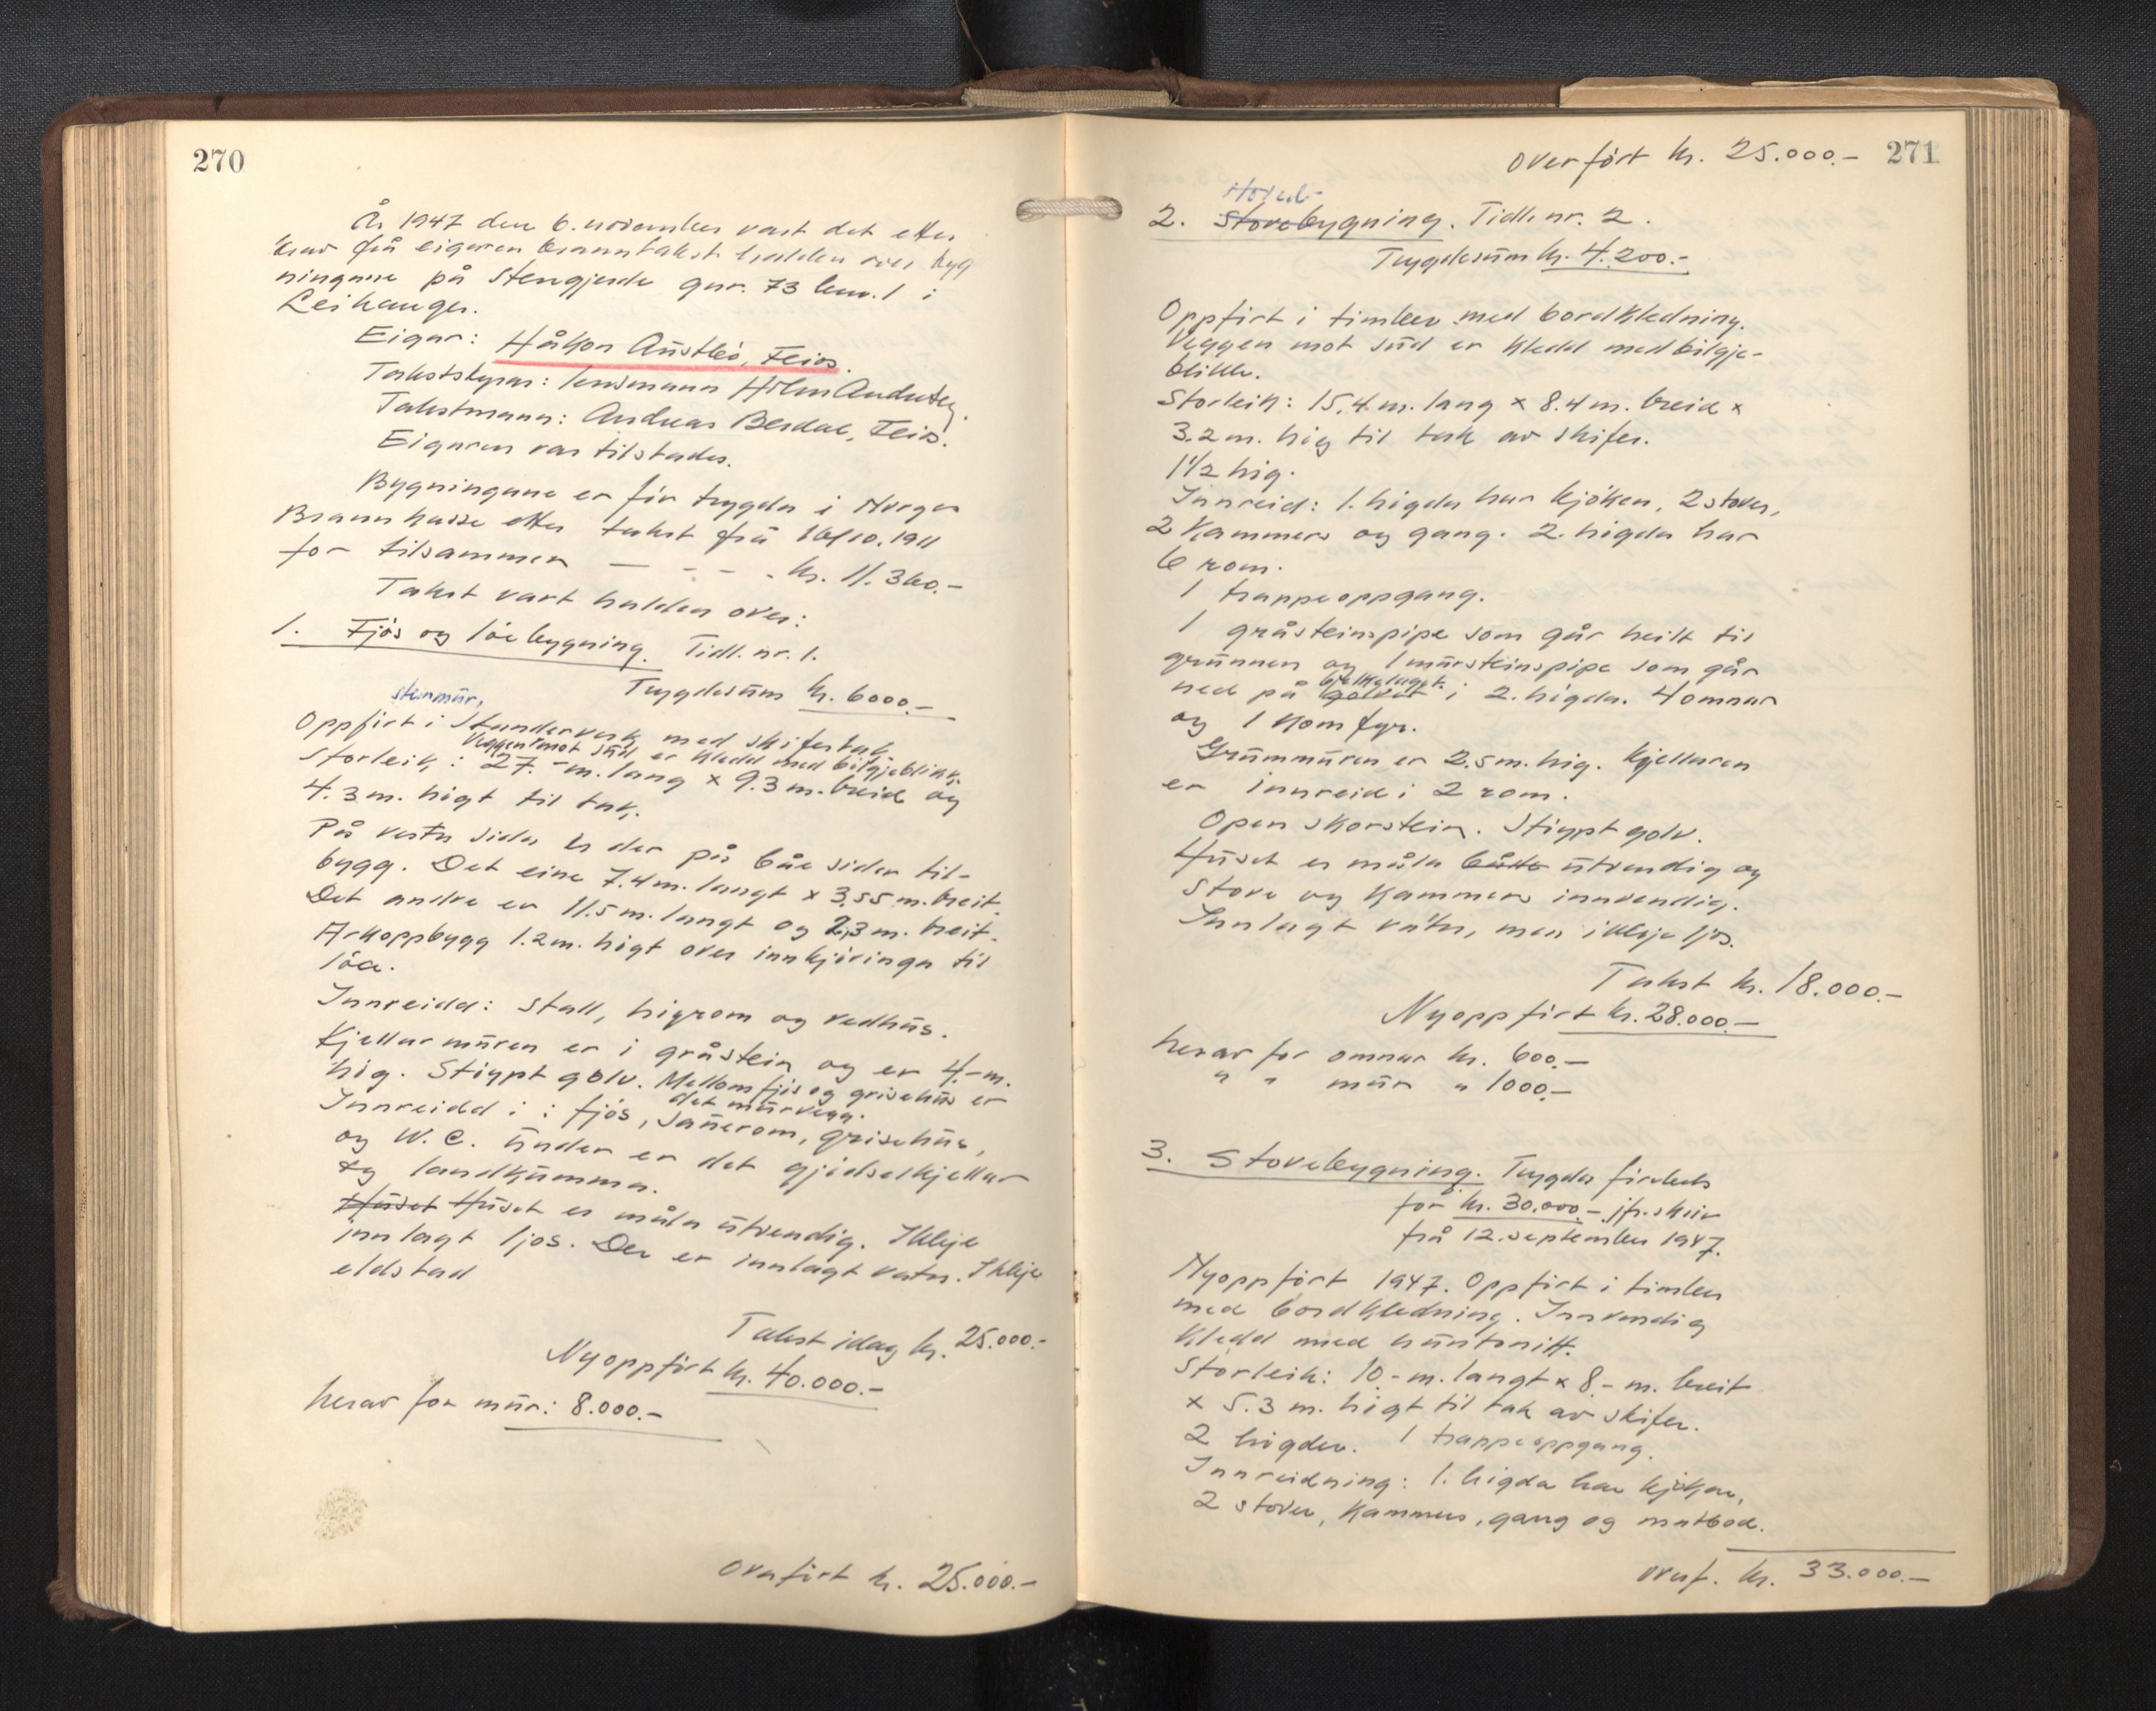 270
År 1947 den 6. november vart det etter
krav frå eigaren branntakst halden over byg
ningane på Stengjerde gnr. 73 bnr. 1 i
Leikanger.
Eigar: Håkon Austlid, Feios.
Takststyrar: lensmann
Takstmann: Andreas Berdal, Feios.
Eigaren var tilstades.
Bygningane er før trygda i Norges
Brannkasse etter takst frå 16/10.1911
for tilsammen — - - - kr. 11.360.-
Takst vart halden over:
1. Fjøs og löebygning. Tidl. nr. 1.
Trygdesum kr. 6000.-
steinmur,
Oppført i Stenderverk med skifertak
Veggen mot sud er kledd med bølgjeblikk.
Storleik: 27.- m. lang x 9.3 m. breid og
4.3 m. høgt til tak.
På vestre sida er der på båe sider til-
bygg. Det eine 7.4 m. langt x 3.55 m. breit.
Det andre er 11.5 m. langt og 2,3 m. breit.
Arkoppbygg 1.2 m. høgt over innkjøringa til
löa.
Innreidd: stall, høyrom og vedhus.
Kjellarmuren er i gråstein og er 4.- m.
høg. Støypt golv. Mellom fjøs og grisehus er
det murvegg.
Innreidd i: fjøs, sauerom, grisehus,
og W.C. Under er det gjødselkjellar
og landkumma.
Huset Huset er måla utvendig. Ikkje
innlagt ljos. Der er innlagt vatn. Ikkje
eldstad
Takst idag kr. 25.000.-
Nyoppført kr. 40.000.-
herav for mur: 8.000.-
Overført kr. 25.000.-
271
Overført kr. 25.000.-
Hoved-
2. Stovebygning. Tidl. nr. 2.
Trygdesum kr. 4.200.-
Oppført i timber med bordkledning.
Veggen mot sud er kledd med bølgje-
blikk.
Storleik: 15.4 m. lang x 8.4 m. breid x
3.2 m. høg til tak av skifer.
1 1/2 høg.
Innreid: 1. høgda har kjøken, 2 stover,
2 kammers og gang. 2. høgda har
6 rom.
1 trappeoppgang.
1 gråsteinspipe som går heilt til
grunnen og 1 mursteinspipe som går
bjelkelaget
ned på golvet i 2. høgda. 4 omnar
og 1 komfyr.
Grunnmuren er 2.5 m. høg. Kjellaren
er innreid i 2 rom.
Open skorstein. Støypt golv.
Huset er måla både utvendig og
Stove og kammers innvendig.
Innlagt vatn, men ikkje ljos.
Takst kr. 18.000.-
Nyoppført kr. 28.000.-
herav for omnar kr. 600.-
" " mur " 1000.-
3. Stovebygning. Trygda førebels
for kr. 30.000.- jfr. skriv
frå 12. september 1947.
Nyoppført 1947. Oppført i timber
med bordkledning. Innvendig
kledd med huntonitt.
Storleik: 10.- m. langt x 8.- m. breit
x 5.3 m. høgt til tak av skifer.
2 høgder. 1 trappeoppgang.
Innreidning: 1. høgda har kjøken,
2 stover, kammers, gang og matbod.
overf. kr. 33.000.-